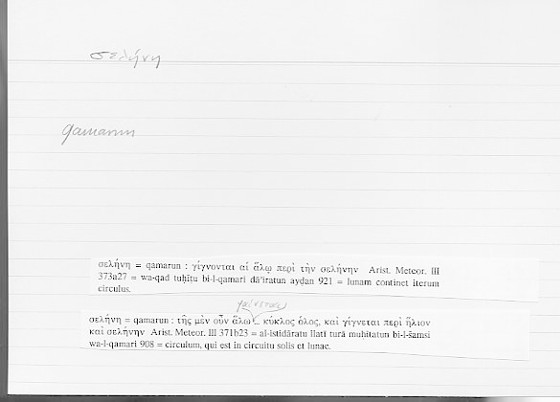 σελήνη
qamarun
σελήνη = qamarun : γίγνονται αἱ ἅλῳ περὶ τὴν σελήνην Arist. Meteor. III
373a27 = wa-qad tuḥīṭu bi-l-qamari dāʾiratun ayḍan 921 = lunam continet iterum
circulus.
φαίνεται
σελήνη = qamarun : τῆς μὲν οὖν ἅλω – κύκλος ὅλος, καὶ γίγνεται περὶ ἥλιον
καὶ σελήνην Arist. Meteor. III 371b23 = al-istidāratu llatī turā muḥīṭatun bi-l-šamsi
wa-l-qamari 908 = circulum, qui est in circuitu solis et lunae.